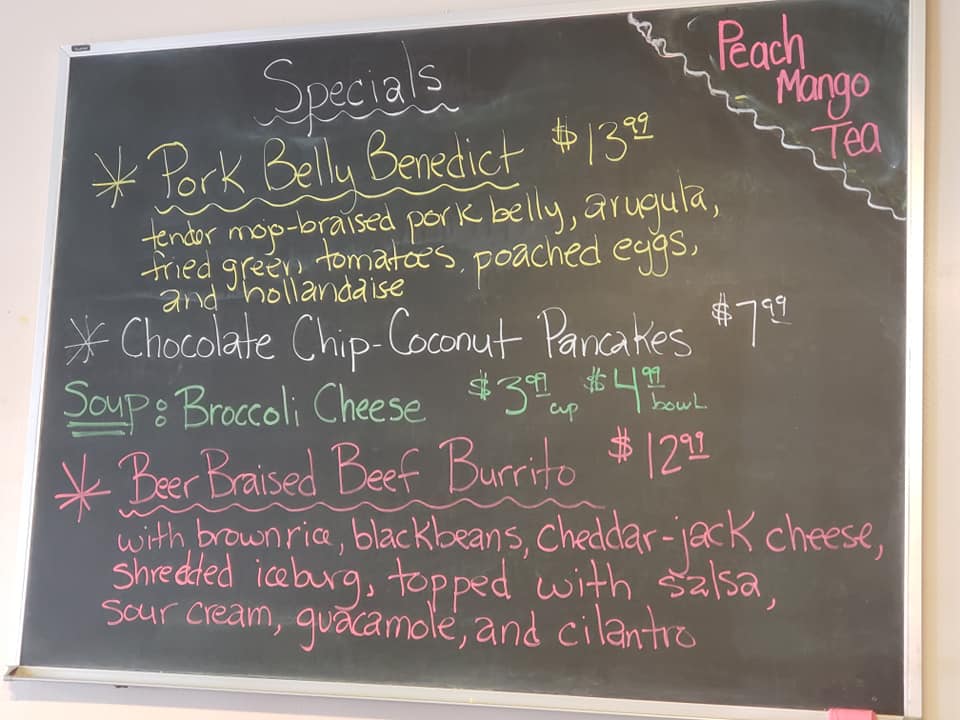 Specials
Peach
Mango
Tea
* Pork Belly Benedict $13.99
tender mojo-braised pork belly, arugula,
fried green, tomatoes, poached eggs,
and hollandaise
* Chocolate Chip-Coconut Pancakes $7.99
Soup: Broccoli Cheese $3.99 cup $4.99 bowl
* Beer Braised Beef Burrito $12.99
with brown rice, blackbeans, cheddar-jack cheese,
shredded iceburg, topped with salsa,
sour cream, guacamole, and cilantro